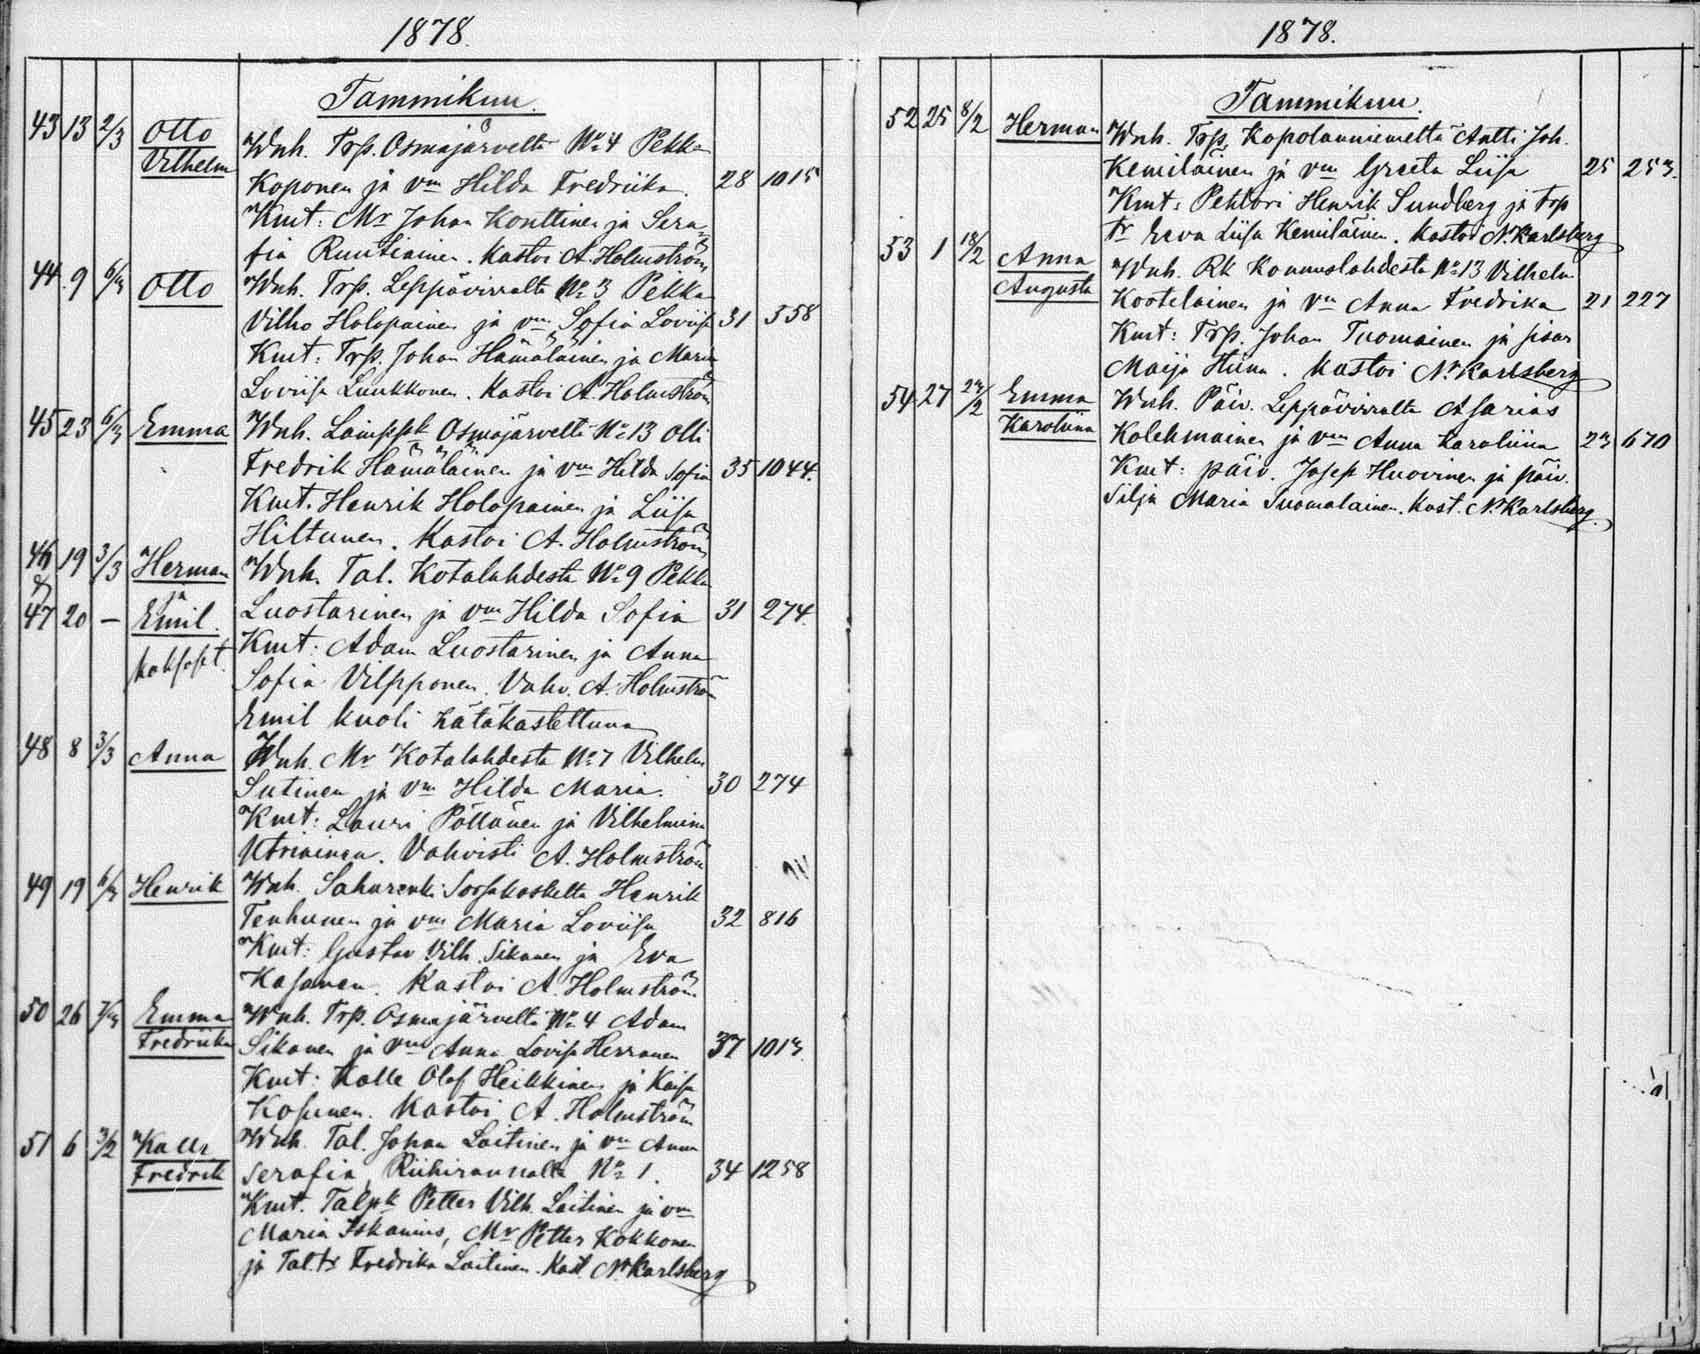 1878.
Tammikuu.
43 13 2/3 Otto Wnh. Trp. Osmajärveltä No 4 Pekka
Vilhelm Koponen ja vm Hilda Fredriika. 28 1015
Kmt: Mr Johan Konttinen ja Sera=
fia Ruutiainen. Kastoi A. Holmström
44. 9 Otto Wnh. Trp. Leppävirralta No 3 Pekka
Vilho Holopainen ja vm Sofia Loviisa 31 358
Kmt: Trp. Johan Hämäläinen ja Maria
Loviisa Luukkonen. Kastoi A. Holmström
45 23 Emma Wnh. Lamppk Osmajärveltä No 13 Olli
Fredrik Hämäläinen ja vm Hilda Sofia 35 1044.
Kmt. Henrik Holopainen ja Liisa
Hiltunen. Kastoi A. Holmström
46 19 3/3 Herman Wnh. Tal. Kotalahdesta No 9 Pekka
& ja
47 20 — Emil. Luostarinen ja vm Hilda Sofia 31 274.
kaksoset. Kmt: Adam Luostarinen ja Anna
Sofia Vilpponen. Vahv. A. Holmström
Emil kuoli hätäkastettuna
48 8 3/3 Anna Wnh. Mr Kotalahdesta No 7 Vilhelm
Sutinen ja vm Hilda Maria. 30 274
Kmt: Lauri Pöllänen ja Vilhelmina
Utriainen. Vahvisti A. Holmström
49 19 Henrik Wnh. Sahurenki Sorsakoskelta Henrik
Tenhunen ja vm Maria Loviisa 32 816
Kmt: Gustav Vilh. Sikanen ja Eva
Kasanen. Kastoi A. Holmström.
50 26 Emma Wnh. Trp. Osmajärveltä No 4 Adam
Fredriika Sikanen ja vm Anna Lovisa Herranen 37 1013.
Kmt: Kalle Olof Heikkinen ja Kaisa
Kosunen. Kastoi A. Holmström
51 6 3/2 Kalle Wnh. Tal. Johan Laitinen ja vm Anna
Fredrik Serafia, Riihirannalta No 1. 34 1258
Kmt. Talpk Petter Vilh. Laitinen ja vm
Maria Iskanius, Mr Petter Kokkonen
ja Tal. tr Fredrika Laitinen. Kast. N. Karlsberg
1878.
Tammikuu.
52 25 8/2 Herman Wnh. Trp. Kopolanniemeltä Antti Joh.
Kemiläinen ja vm Greeta Liisa 25 253.
Kmt: Pehtori Henrik Sundberg ja Trp
tr Eeva Liisa Kemiläinen. Kastoi N. Karlsberg
53 1 18/2 Anna Wnh. RK Konnuslahdesta No 13 Vilhelm
Augusta Kootelainen ja vm Anna Fredrika 21 227
Kmt: Trp. Johan Tuomainen ja sisar
Maija Stiina. Kastoi N. Karlsberg
54 27 Emma Wnh. Päiv. Leppävirralta Asarias
Karoliina Kolehmainen ja vm Anna Karoliina 23 670
Kmt: päiv. Josef Huovinen ja päiv.
Silja Maria Suomalainen. Kast. N. Karlsberg.